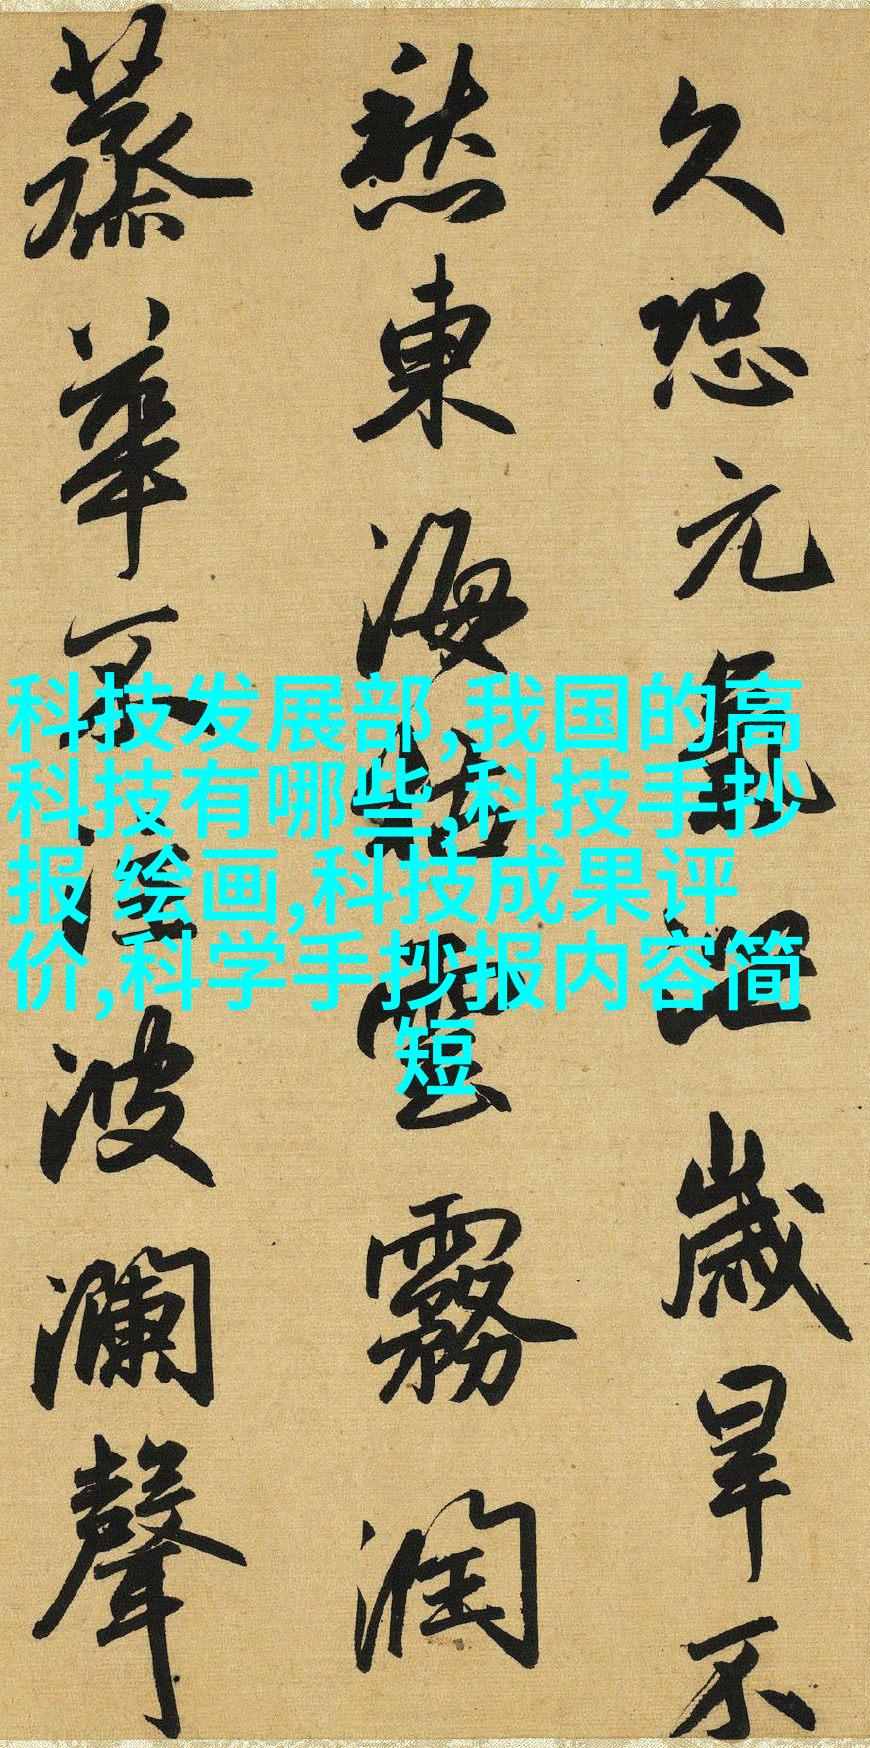 久恐元氣泄歲旱不
愁東海枯雲霧潤
蒸華不注波瀾聲
科技发展部,我国的高
科技有哪些,科技手抄
报 绘画,科技成果评
价,科学手抄报内容简
短